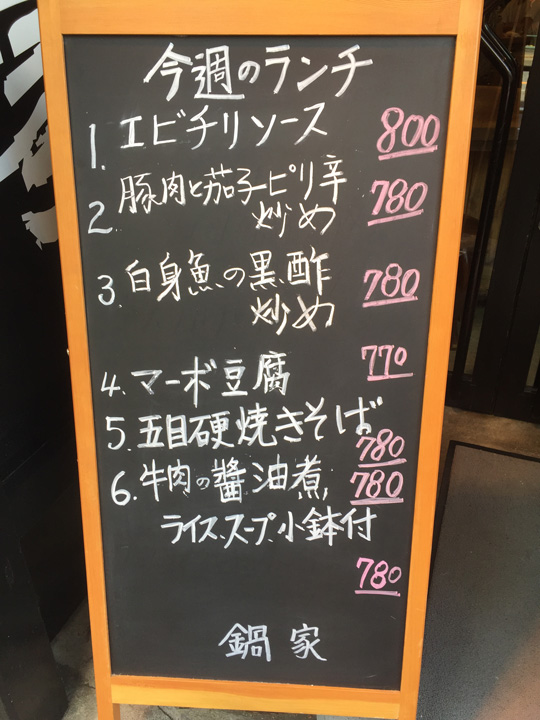 今週のランチ
1. エビチリソース 800
2. 豚肉と茄子ピリ辛
炒め 780
3. 白身魚の黒酢
炒め 780
4. マーボ豆腐 770
5. 五目硬焼きそば 780
6. 牛肉の醤油煮 780
ライス、スープ、小鉢付
780
鍋家